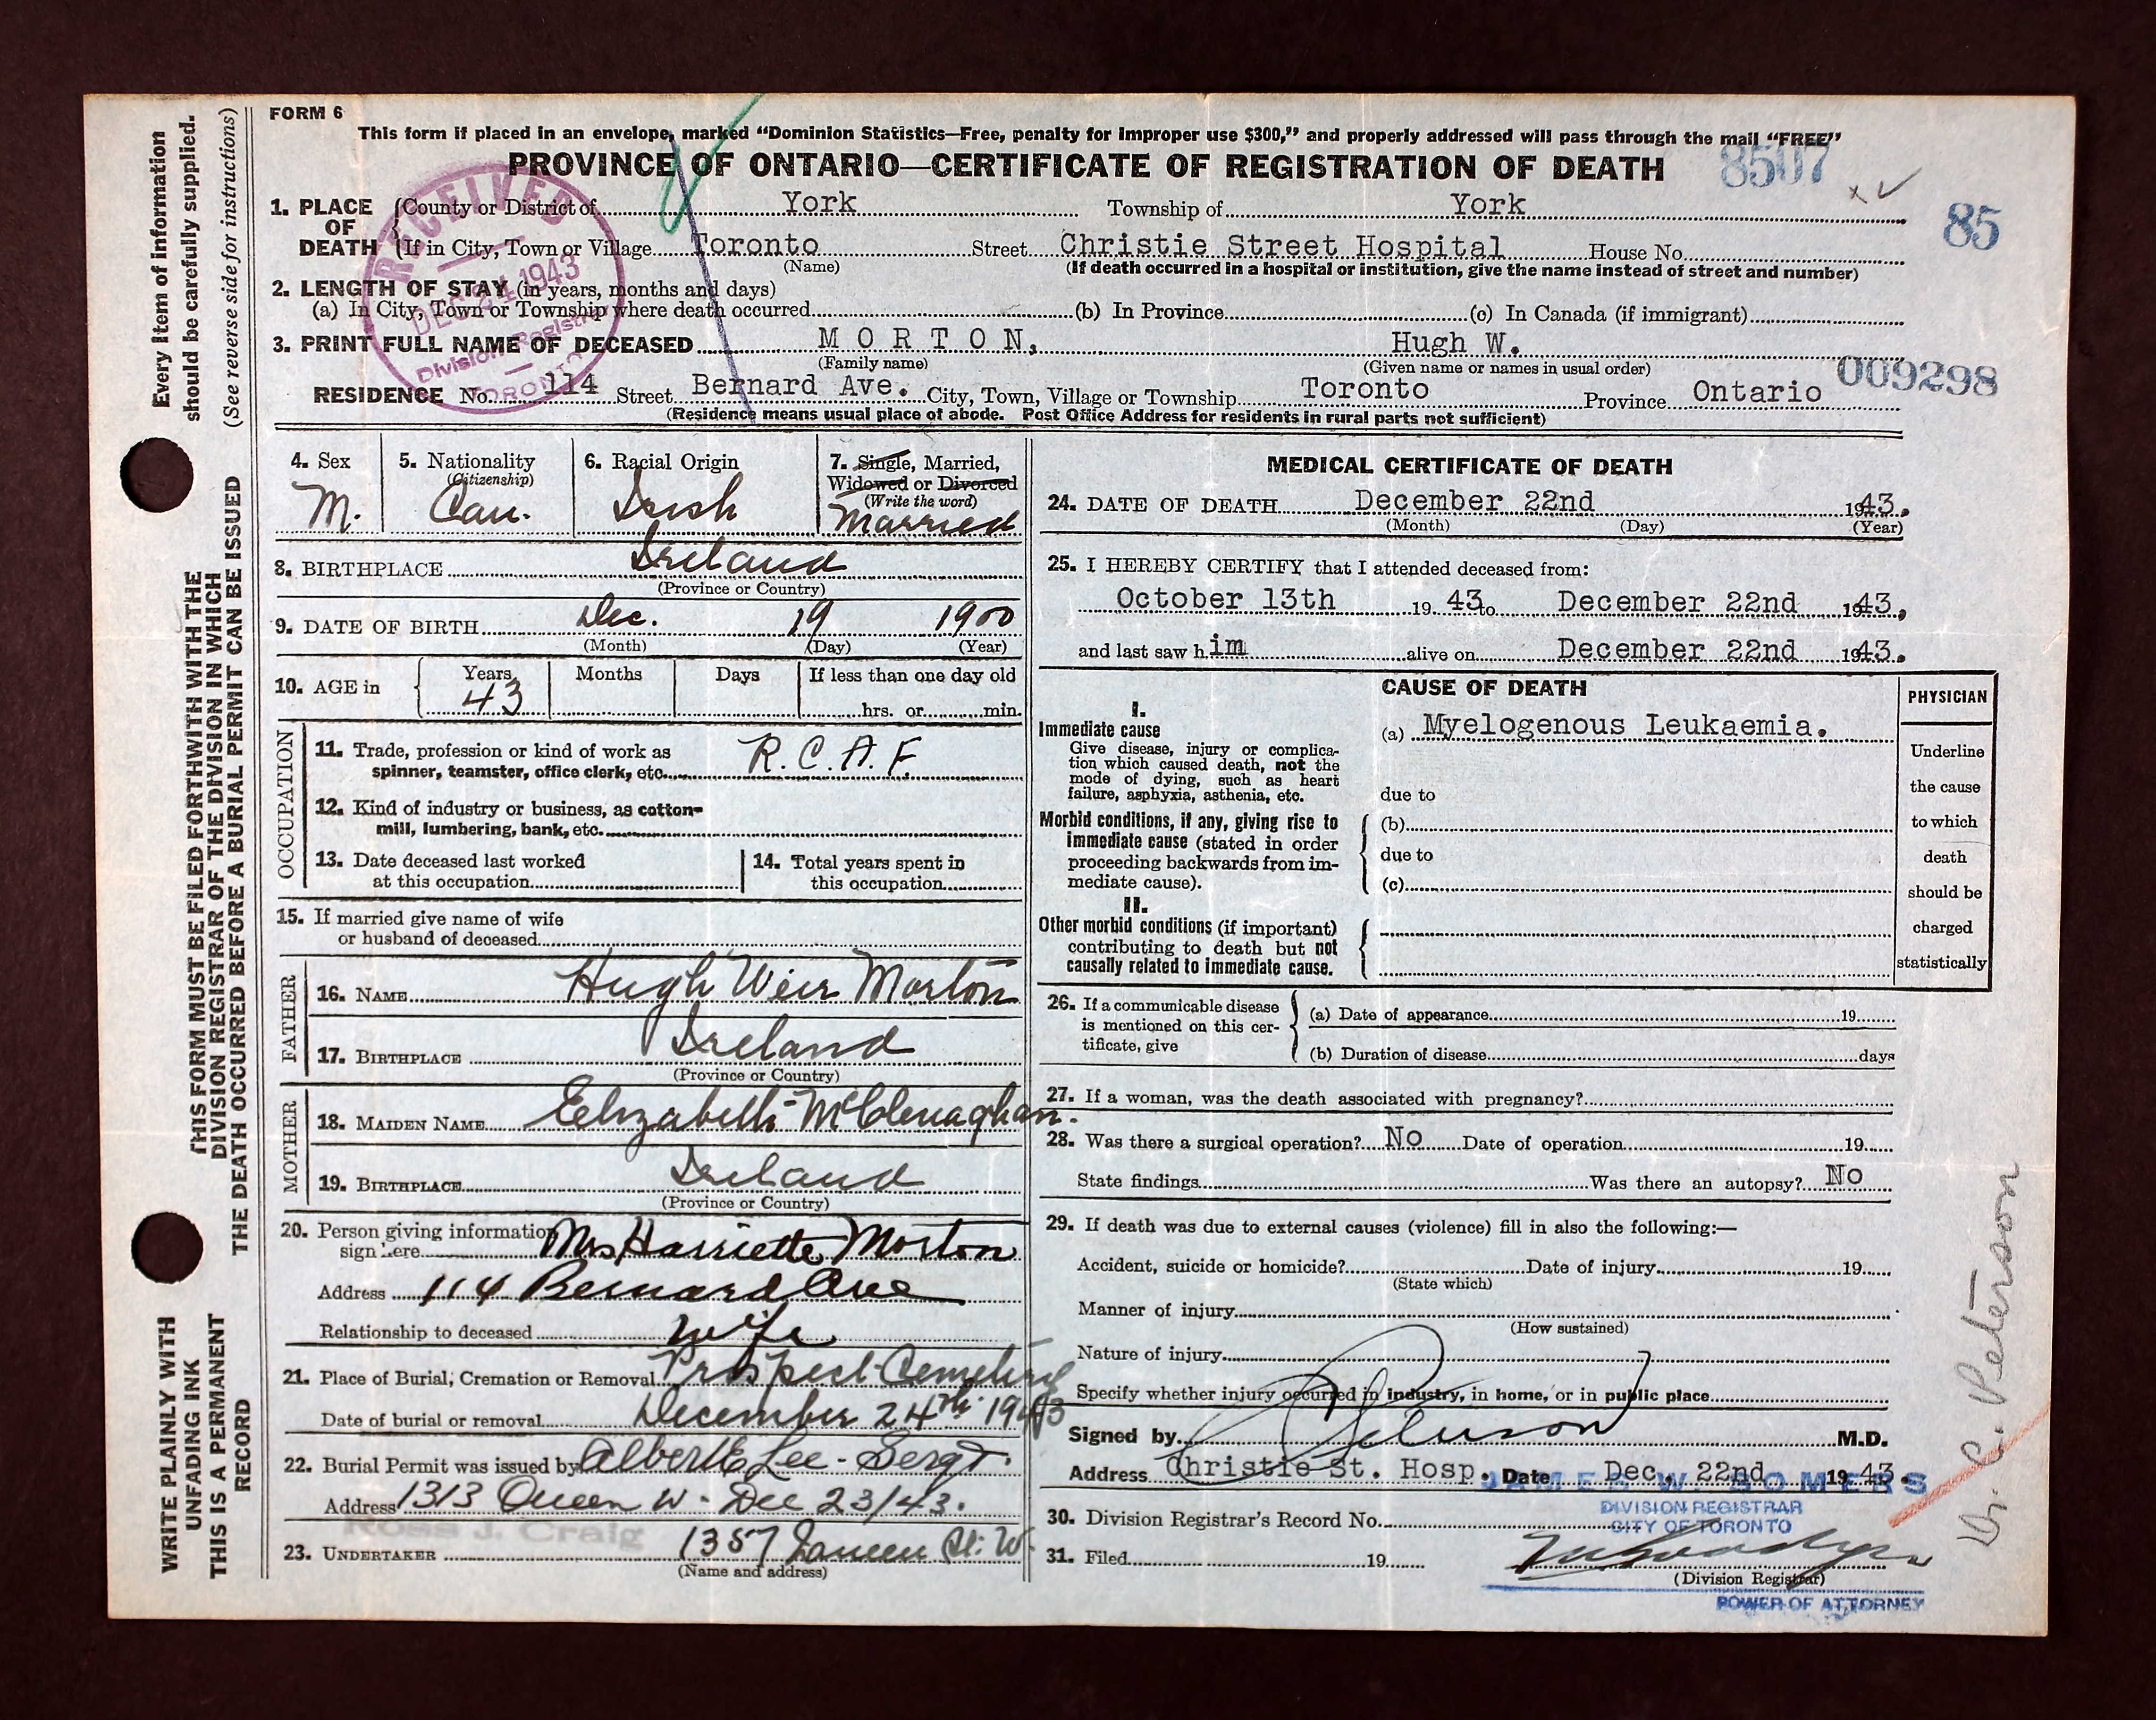 FORM 6
This form if placed in an envelope, marked “Dominion Statistics—Free, penalty for improper use $300,” and properly addressed will pass through the mail “FREE”
PROVINCE OF ONTARIO—CERTIFICATE OF REGISTRATION OF DEATH
8507
85
RECEIVED
DEC 24 1943
Division Registrar
TORONTO
1. PLACE OF DEATH
County or District of York Township of York
If in City, Town or Village Toronto Street Christie Street Hospital House No.
(Name) (If death occurred in a hospital or institution, give the name instead of street and number)
2. LENGTH OF STAY (in years, months and days)
(a) In City, Town or Township where death occurred (b) In Province (c) In Canada (if immigrant)
3. PRINT FULL NAME OF DECEASED MORTON, Hugh W.
(Family name) (Given name or names in usual order)
009298
RESIDENCE No. 114 Street Bernard Ave. City, Town, Village or Township Toronto Province Ontario
(Residence means usual place of abode. Post Office Address for residents in rural parts not sufficient)
4. Sex
M.
5. Nationality
(Citizenship)
Can.
6. Racial Origin
Irish
7. Single, Married,
Widowed or Divorced
(Write the word)
Married
8. BIRTHPLACE Ireland
(Province or Country)
9. DATE OF BIRTH Dec. 19 1900
(Month) (Day) (Year)
10. AGE in Years Months Days If less than one day old
43 hrs. or min.
OCCUPATION
11. Trade, profession or kind of work as
spinner, teamster, office clerk, etc. R.C.A.F.
12. Kind of industry or business, as cotton-
mill, lumbering, bank, etc.
13. Date deceased last worked
at this occupation
14. Total years spent in
this occupation
15. If married give name of wife
or husband of deceased
FATHER
16. NAME Hugh Weir Morton
17. BIRTHPLACE Ireland
(Province or Country)
MOTHER
18. MAIDEN NAME Elizabeth McClenaghan.
19. BIRTHPLACE Ireland
(Province or Country)
20. Person giving information
sign here Mrs Harriette Morton
Address 114 Bernard Ave
Relationship to deceased wife
21. Place of Burial, Cremation or Removal Prospect Cemetery
Date of burial or removal December 24th 1943
22. Burial Permit was issued by Albert E Lee - Sergt.
Address 1313 Queen W - Dec 23/43.
Ross J. Craig
23. UNDERTAKER 1357 Queen St. W.
(Name and address)
MEDICAL CERTIFICATE OF DEATH
24. DATE OF DEATH December 22nd 1943.
(Month) (Day) (Year)
25. I HEREBY CERTIFY that I attended deceased from:
October 13th 19 43 to December 22nd 1943.
and last saw him alive on December 22nd 1943.
CAUSE OF DEATH
I.
Immediate cause
Give disease, injury or complica-
tion which caused death, not the
mode of dying, such as heart
failure, asphyxia, asthenia, etc.
(a) Myelogenous Leukaemia.
due to
Morbid conditions, if any, giving rise to
immediate cause (stated in order
proceeding backwards from im-
mediate cause).
(b)
due to
(c)
II.
Other morbid conditions (if important)
contributing to death but not
causally related to immediate cause.
PHYSICIAN
Underline
the cause
to which
death
should be
charged
statistically
26. If a communicable disease
is mentioned on this cer-
tificate, give
(a) Date of appearance 19
(b) Duration of disease days
27. If a woman, was the death associated with pregnancy?
28. Was there a surgical operation? No Date of operation 19
State findings Was there an autopsy? No
29. If death was due to external causes (violence) fill in also the following:—
Accident, suicide or homicide? Date of injury 19
(State which)
Manner of injury
(How sustained)
Nature of injury
Specify whether injury occurred in industry, in home, or in public place
Signed by M.D.
Address Christie St. Hosp. Date Dec. 22nd 1943.
JAMES W. SOMERS
DIVISION REGISTRAR
CITY OF TORONTO
30. Division Registrar's Record No.
31. Filed 19
(Division Registrar)
POWER OF ATTORNEY
Dr. C. Peterson
Every item of information
should be carefully supplied.
(See reverse side for instructions)
THIS FORM MUST BE FILED FORTHWITH WITH THE
DIVISION REGISTRAR OF THE DIVISION IN WHICH
THE DEATH OCCURRED BEFORE A BURIAL PERMIT CAN BE ISSUED
WRITE PLAINLY WITH
UNFADING INK
THIS IS A PERMANENT
RECORD